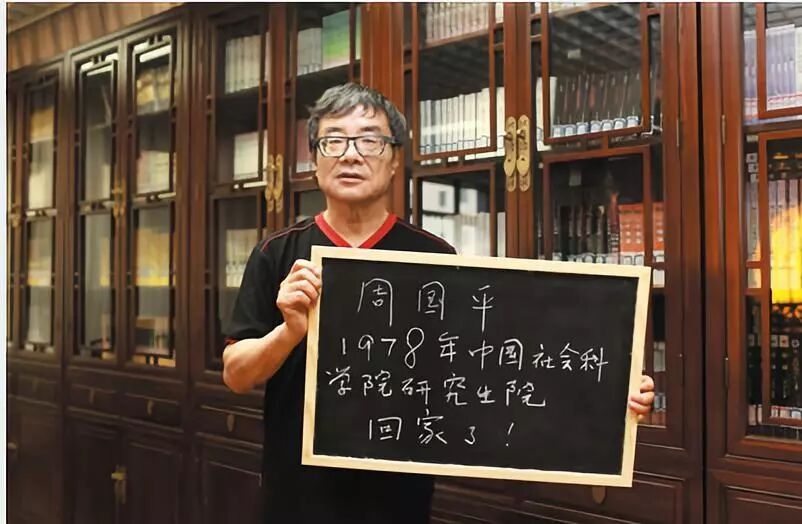 周国平
1978年中国社会科
学院研究生院
回家了！